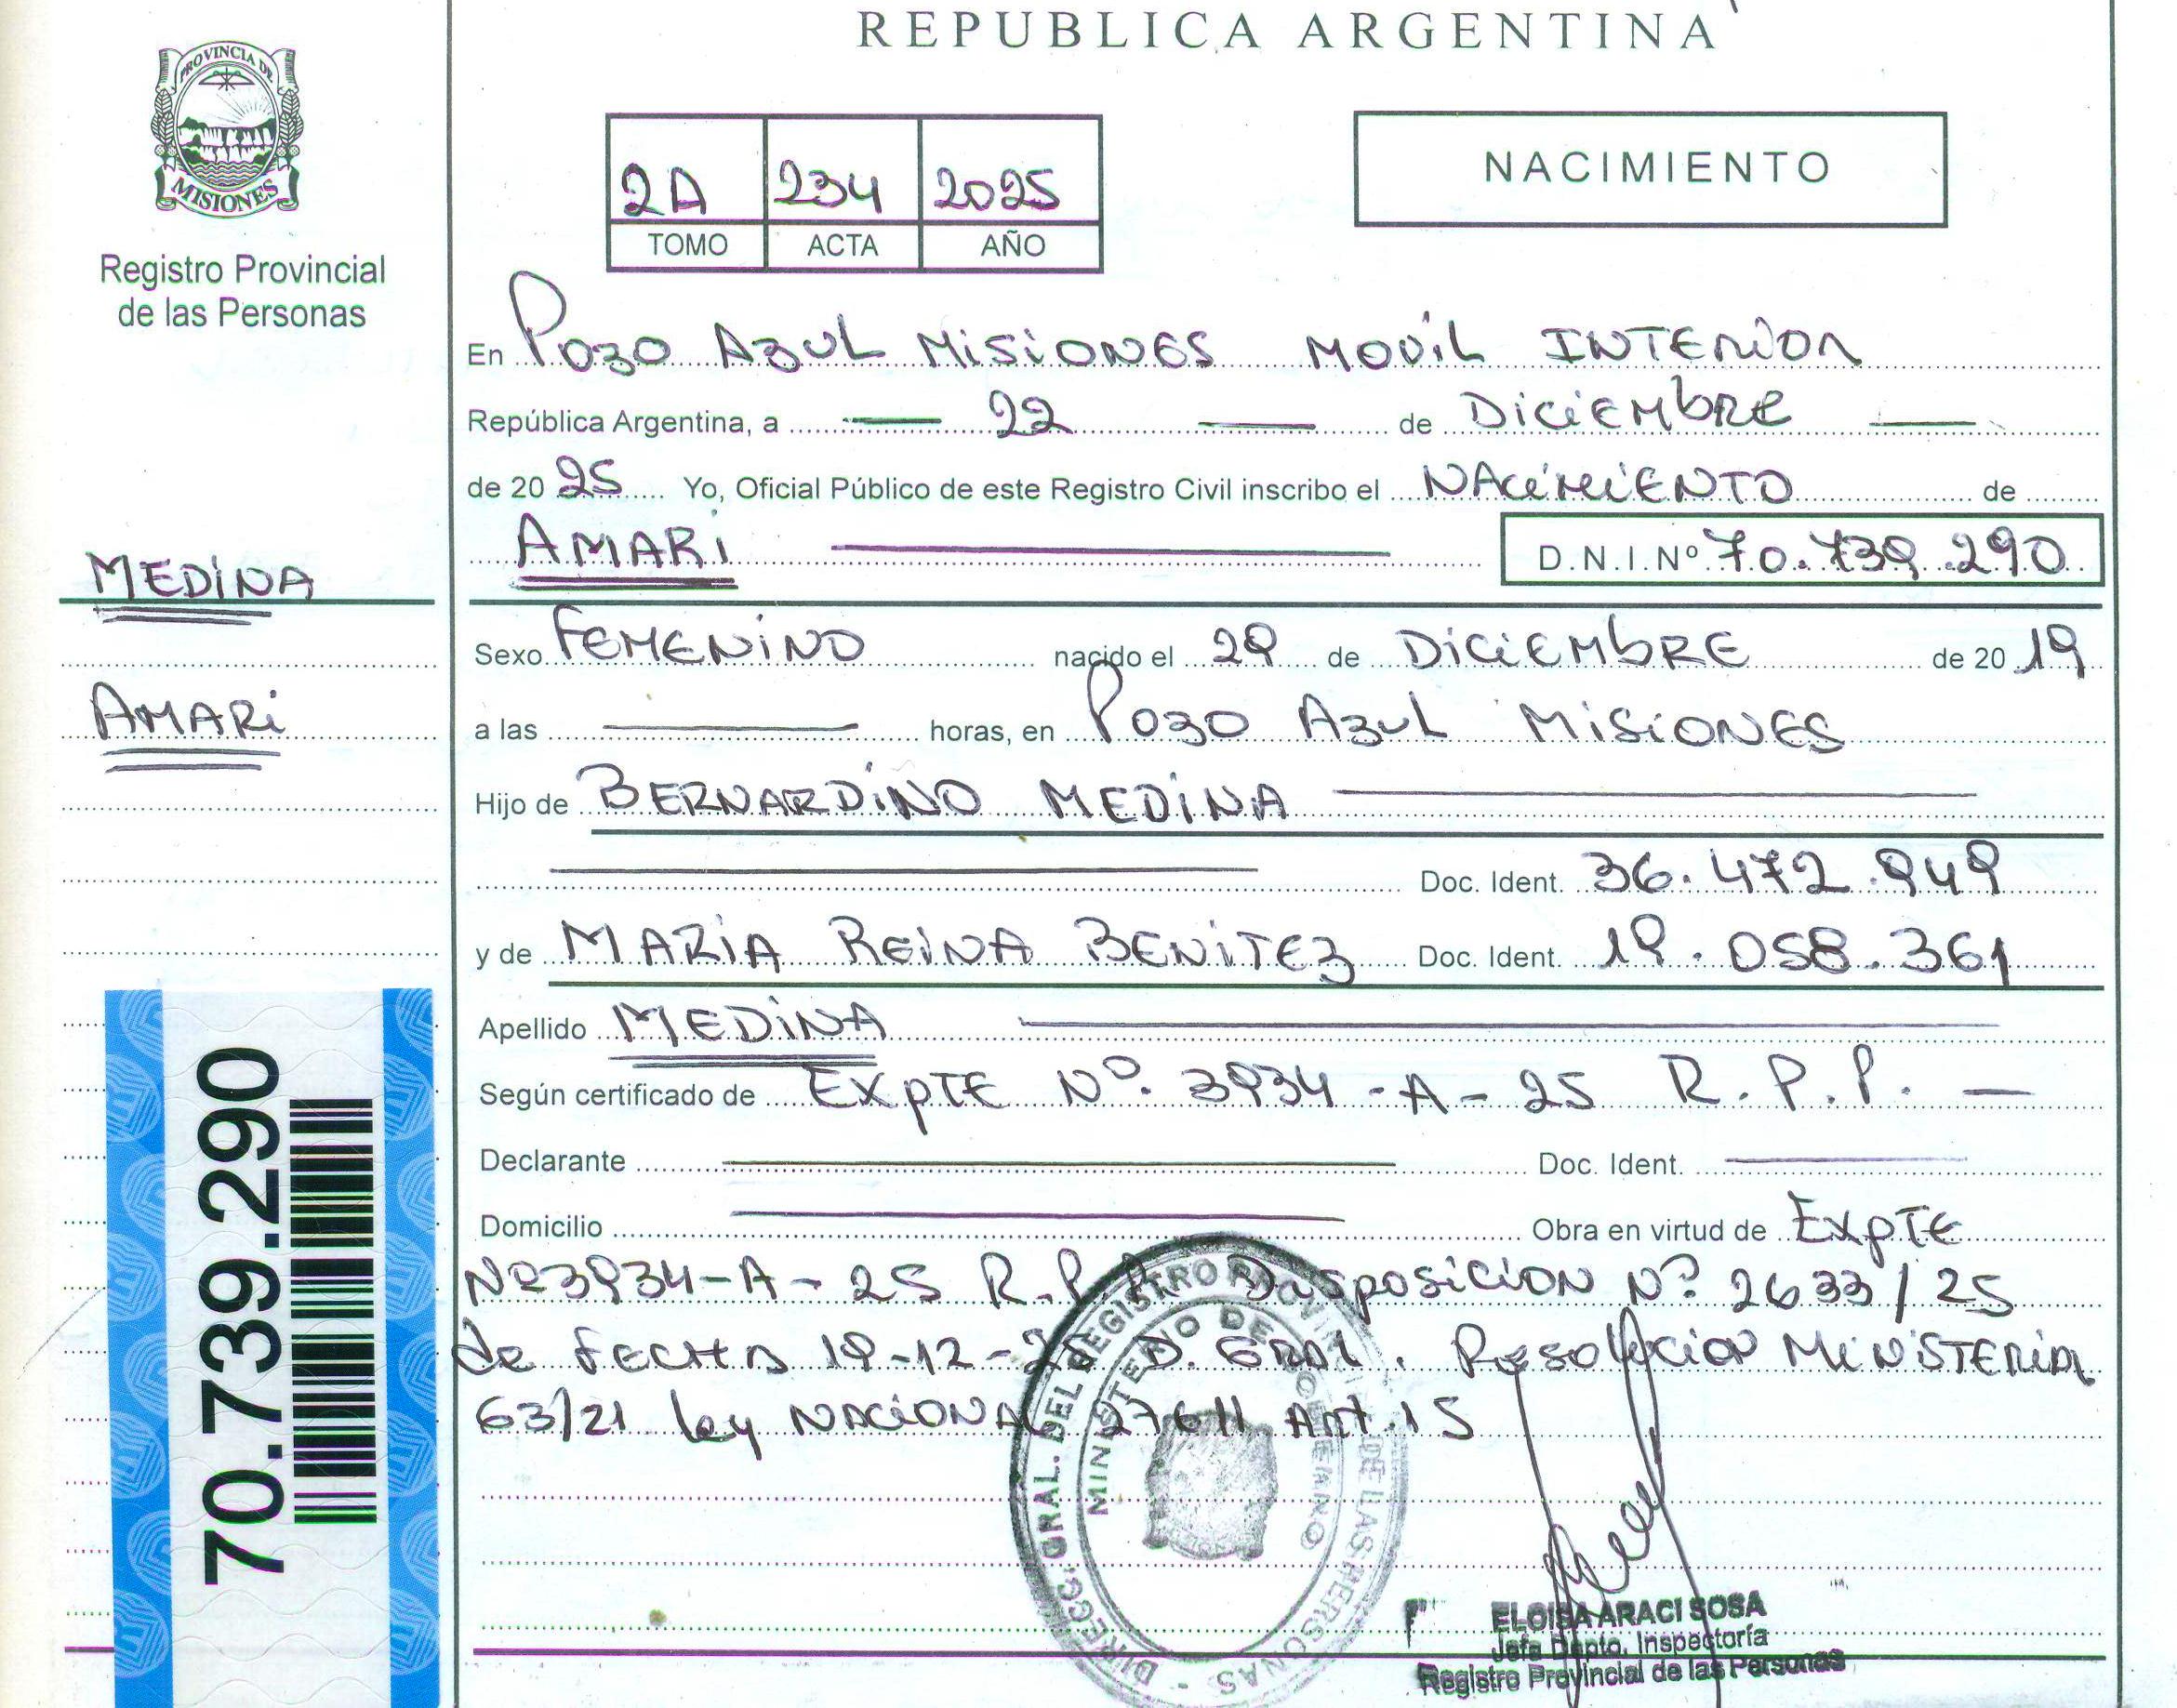 REPUBLICA ARGENTINA
PROVINCIA DE
MISIONES
Registro Provincial
de las Personas
2A 234 2025
TOMO ACTA AÑO
NACIMIENTO
En Pozo Azul Misiones Movil Interior
República Argentina, a 22 de Diciembre
de 20 25 Yo, Oficial Público de este Registro Civil inscribo el Nacimiento de
AMARI D.N.I.Nº 70.739.290
MEDINA
AMARI
Sexo Femenino nacido el 29 de Diciembre de 20 19
a las horas, en Pozo Azul Misiones
Hijo de BERNARDINO MEDINA
Doc. Ident. 36.472.949
y de MARIA REINA BENITEZ Doc. Ident. 19.058.361
Apellido MEDINA
Según certificado de Expte Nº. 3934-A-25 R.P.P.
Declarante Doc. Ident.
Domicilio Obra en virtud de Expte
Nº3934-A-25 R.P.P. Disposicion Nº. 2633/25
de fecha 19-12-25 D. Gral. Resolucion Ministerial
63/21 ley Nacional 27611 Art. 15
70.739.290
DIRECC. GRAL. DEL REGISTRO PROVINCIAL DE LAS PERSONAS
MINISTERIO DE GOBIERNO
ELOISA ARACI SOSA
Jefa Dpto. Inspectoría
Registro Provincial de las Personas